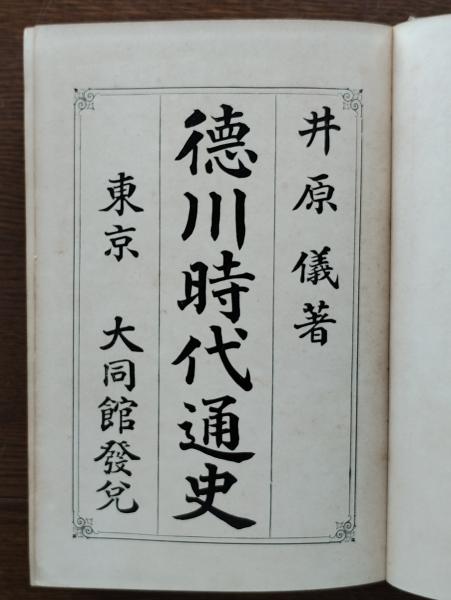 井原 儀著
徳川時代通史
東京 大同館發兌